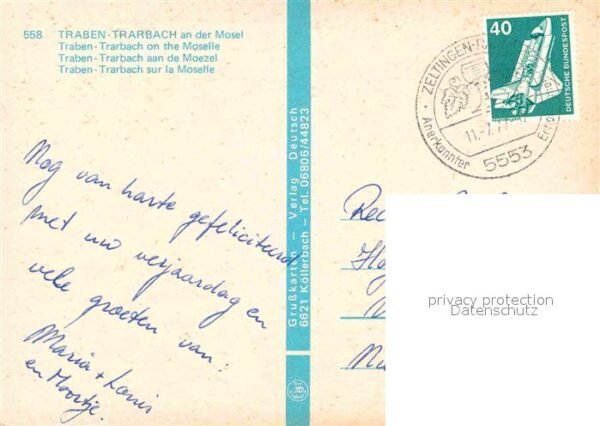 558 TRABEN-TRARBACH an der Mosel
Traben-Trarbach on the Moselle
Traben-Trarbach aan de Moezel
Traben-Trarbach sur la Moselle
Nog van harte gefeliciteerd
met uw verjaardag en
vele groeten van:
Maria + Louis
en Moortje.
Grußkarten – Verlag Deutsch
6621 Köllerbach – Tel. 06806/44823
40
DEUTSCHE BUNDESPOST
ZELTINGEN-
11.-7.77
Anerkannter
5553
privacy protection
Datenschutz